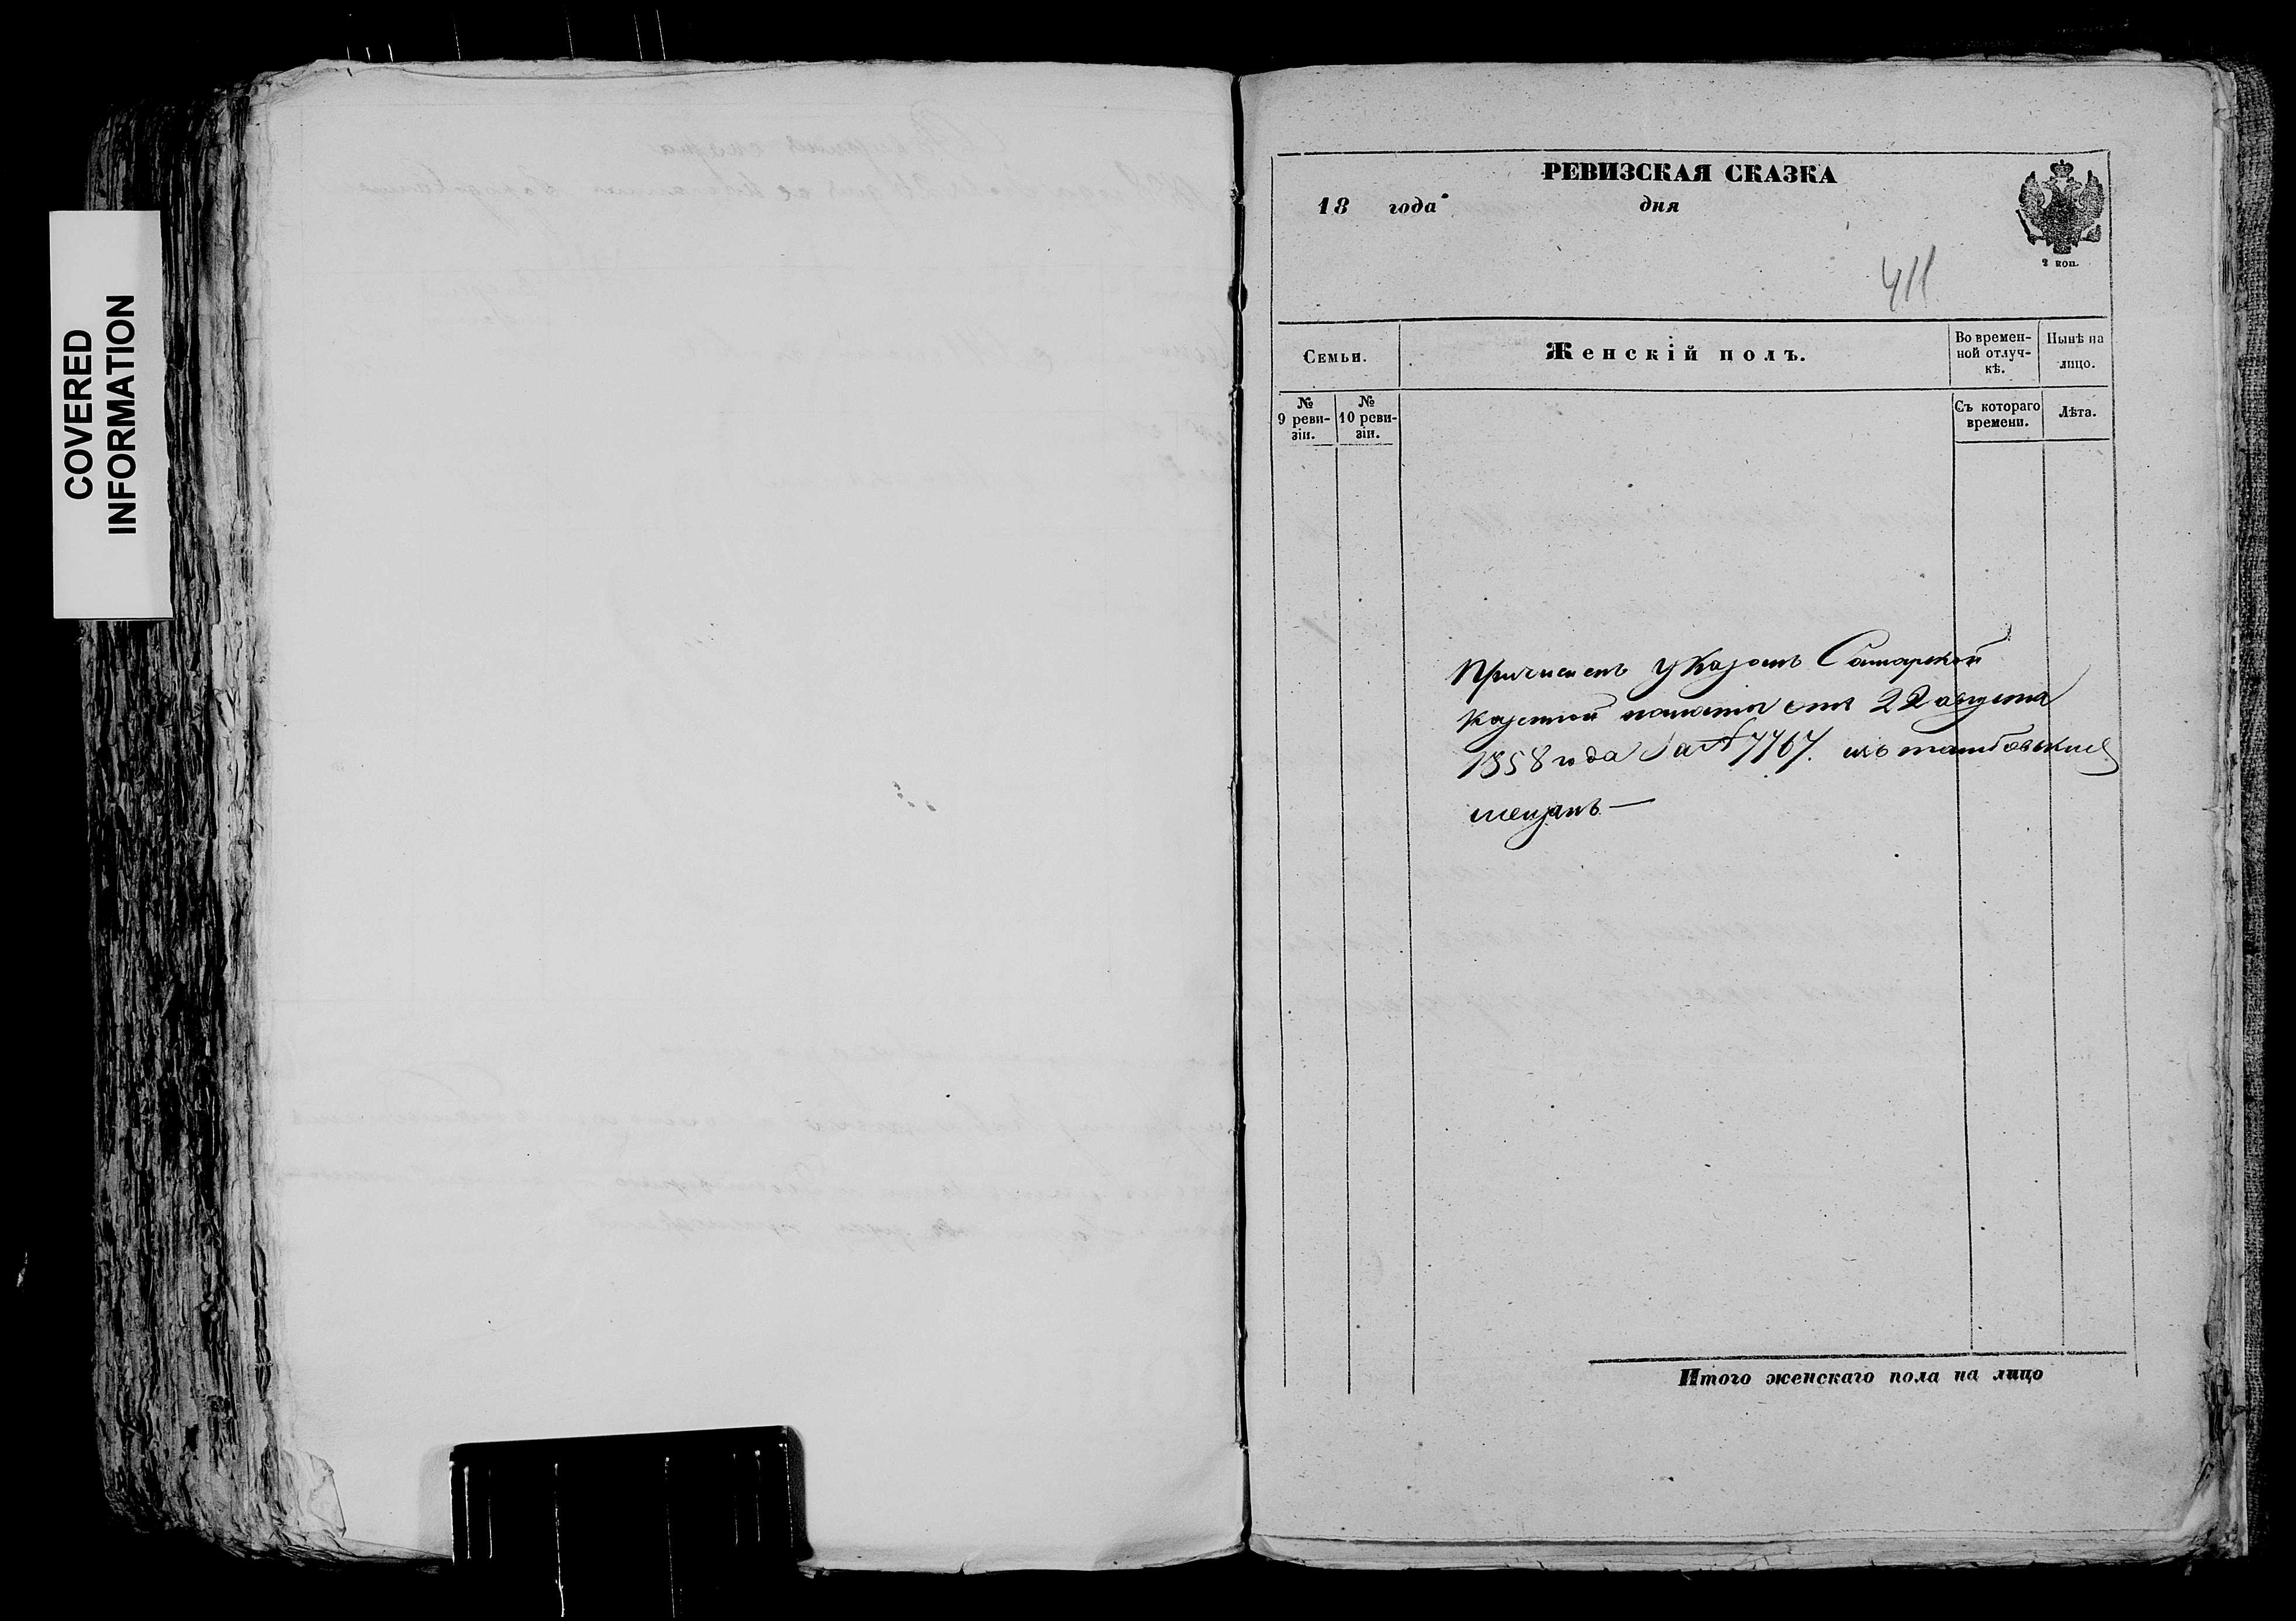 COVERED
INFORMATION
РЕВИЗСКАЯ СКАЗКА
18 года дня
2 коп.
411
Семьи.
Женскій полъ.
Во времен-
ной отлуч-
кѣ.
Нынѣ на
лицо.
№
9 реви-
зіи.
№
10 реви-
зіи.
Съ котораго
времени.
Лѣта.
Причисленъ указомъ Самарской
казенной палаты отъ 22 августа
1858 года за № 7767. изъ тамбовскихъ
мещанъ —
Итого женскаго пола на лицо